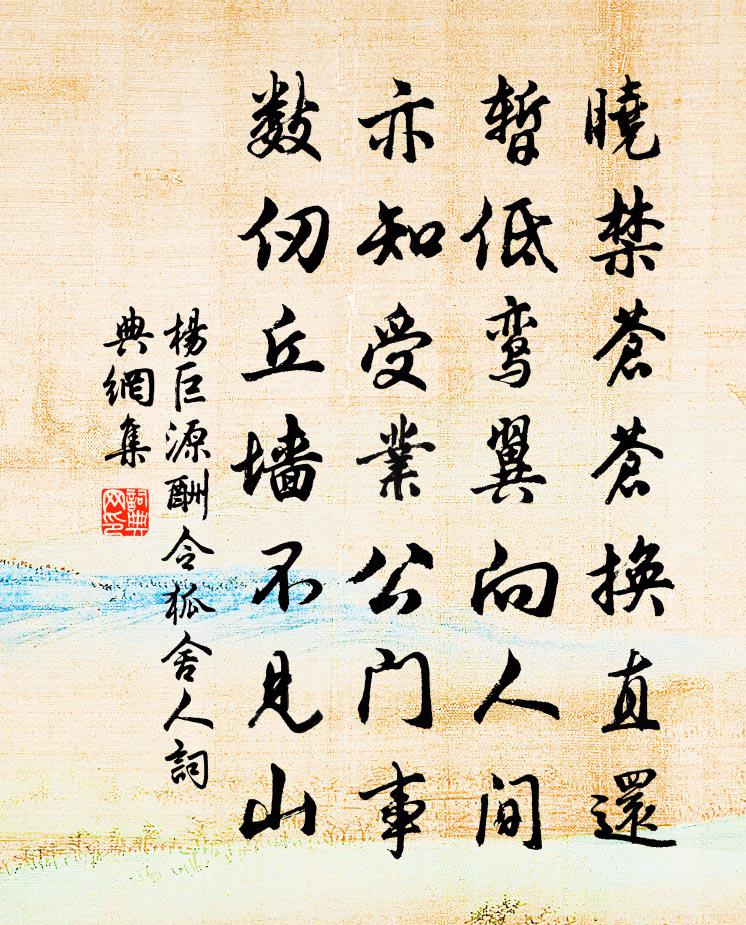 曉禁蒼蒼換直還
暫低鸾翼向人間
亦知受業公门事
数仞丘墙不見山
楊巨源酬令狐舍人詞
典網集
詞典
网印